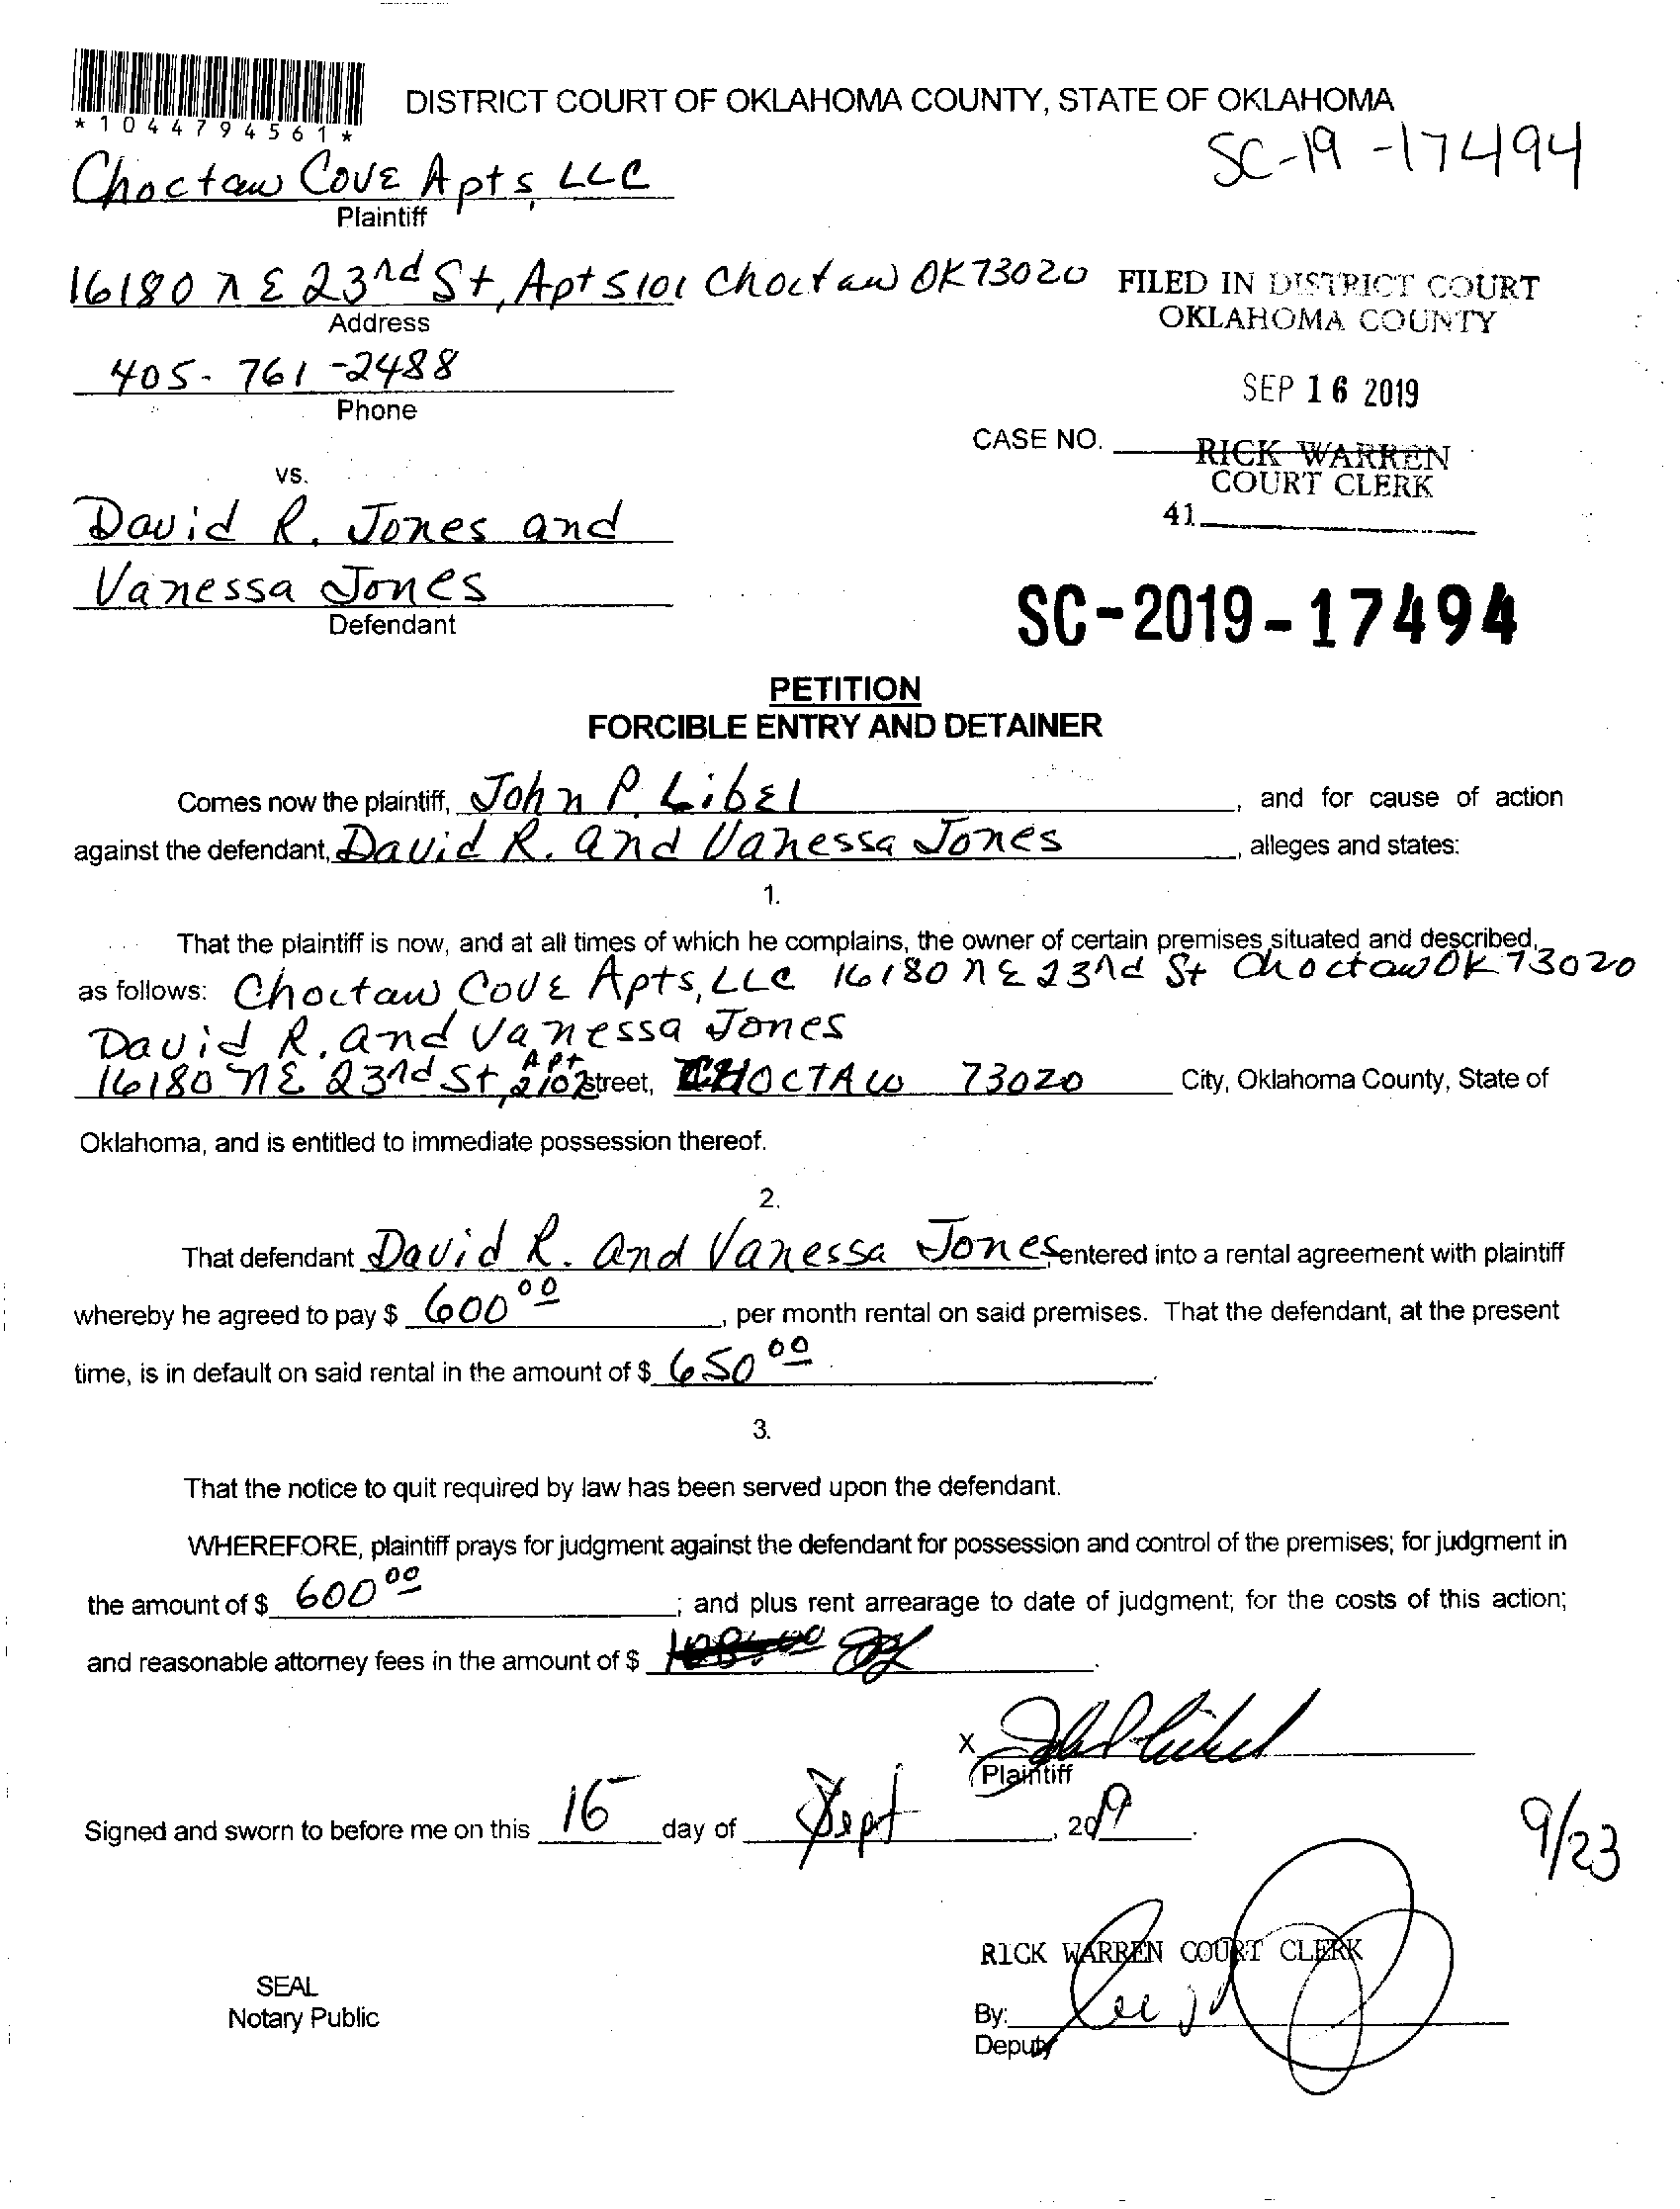 *1044794561*
DISTRICT COURT OF OKLAHOMA COUNTY, STATE OF OKLAHOMA
SC-19-17494
Choctaw Cove Apts, LLC
Plaintiff
16180 NE 23rd St, Apt S101 Choctaw OK 73020
Address
FILED IN DISTRICT COURT
OKLAHOMA COUNTY
405-761-2488
Phone
SEP 16 2019
CASE NO.
RICK WARREN
COURT CLERK
41
vs.
David R. Jones and
Vanessa Jones
Defendant
SC-2019-17494
PETITION
FORCIBLE ENTRY AND DETAINER
Comes now the plaintiff, John P. Libel, and for cause of action
against the defendant, David R. and Vanessa Jones, alleges and states:
1.
That the plaintiff is now, and at all times of which he complains, the owner of certain premises situated and described,
as follows: Choctaw Cove Apts, LLC 16180 NE 23rd St Choctaw OK 73020
David R. and Vanessa Jones
16180 NE 23rd St, Apt 2102 street, CHOCTAW 73020 City, Oklahoma County, State of
Oklahoma, and is entitled to immediate possession thereof.
2.
That defendant David R. and Vanessa Jones, entered into a rental agreement with plaintiff
whereby he agreed to pay $ 600 00, per month rental on said premises. That the defendant, at the present
time, is in default on said rental in the amount of $ 650 00.
3.
That the notice to quit required by law has been served upon the defendant.
WHEREFORE, plaintiff prays for judgment against the defendant for possession and control of the premises; for judgment in
the amount of $ 600 00; and plus rent arrearage to date of judgment; for the costs of this action;
and reasonable attorney fees in the amount of $ .
X
Plaintiff
Signed and sworn to before me on this 16 day of Sept, 2019.
9/23
RICK WARREN COURT CLERK
SEAL
Notary Public
By:
Deputy